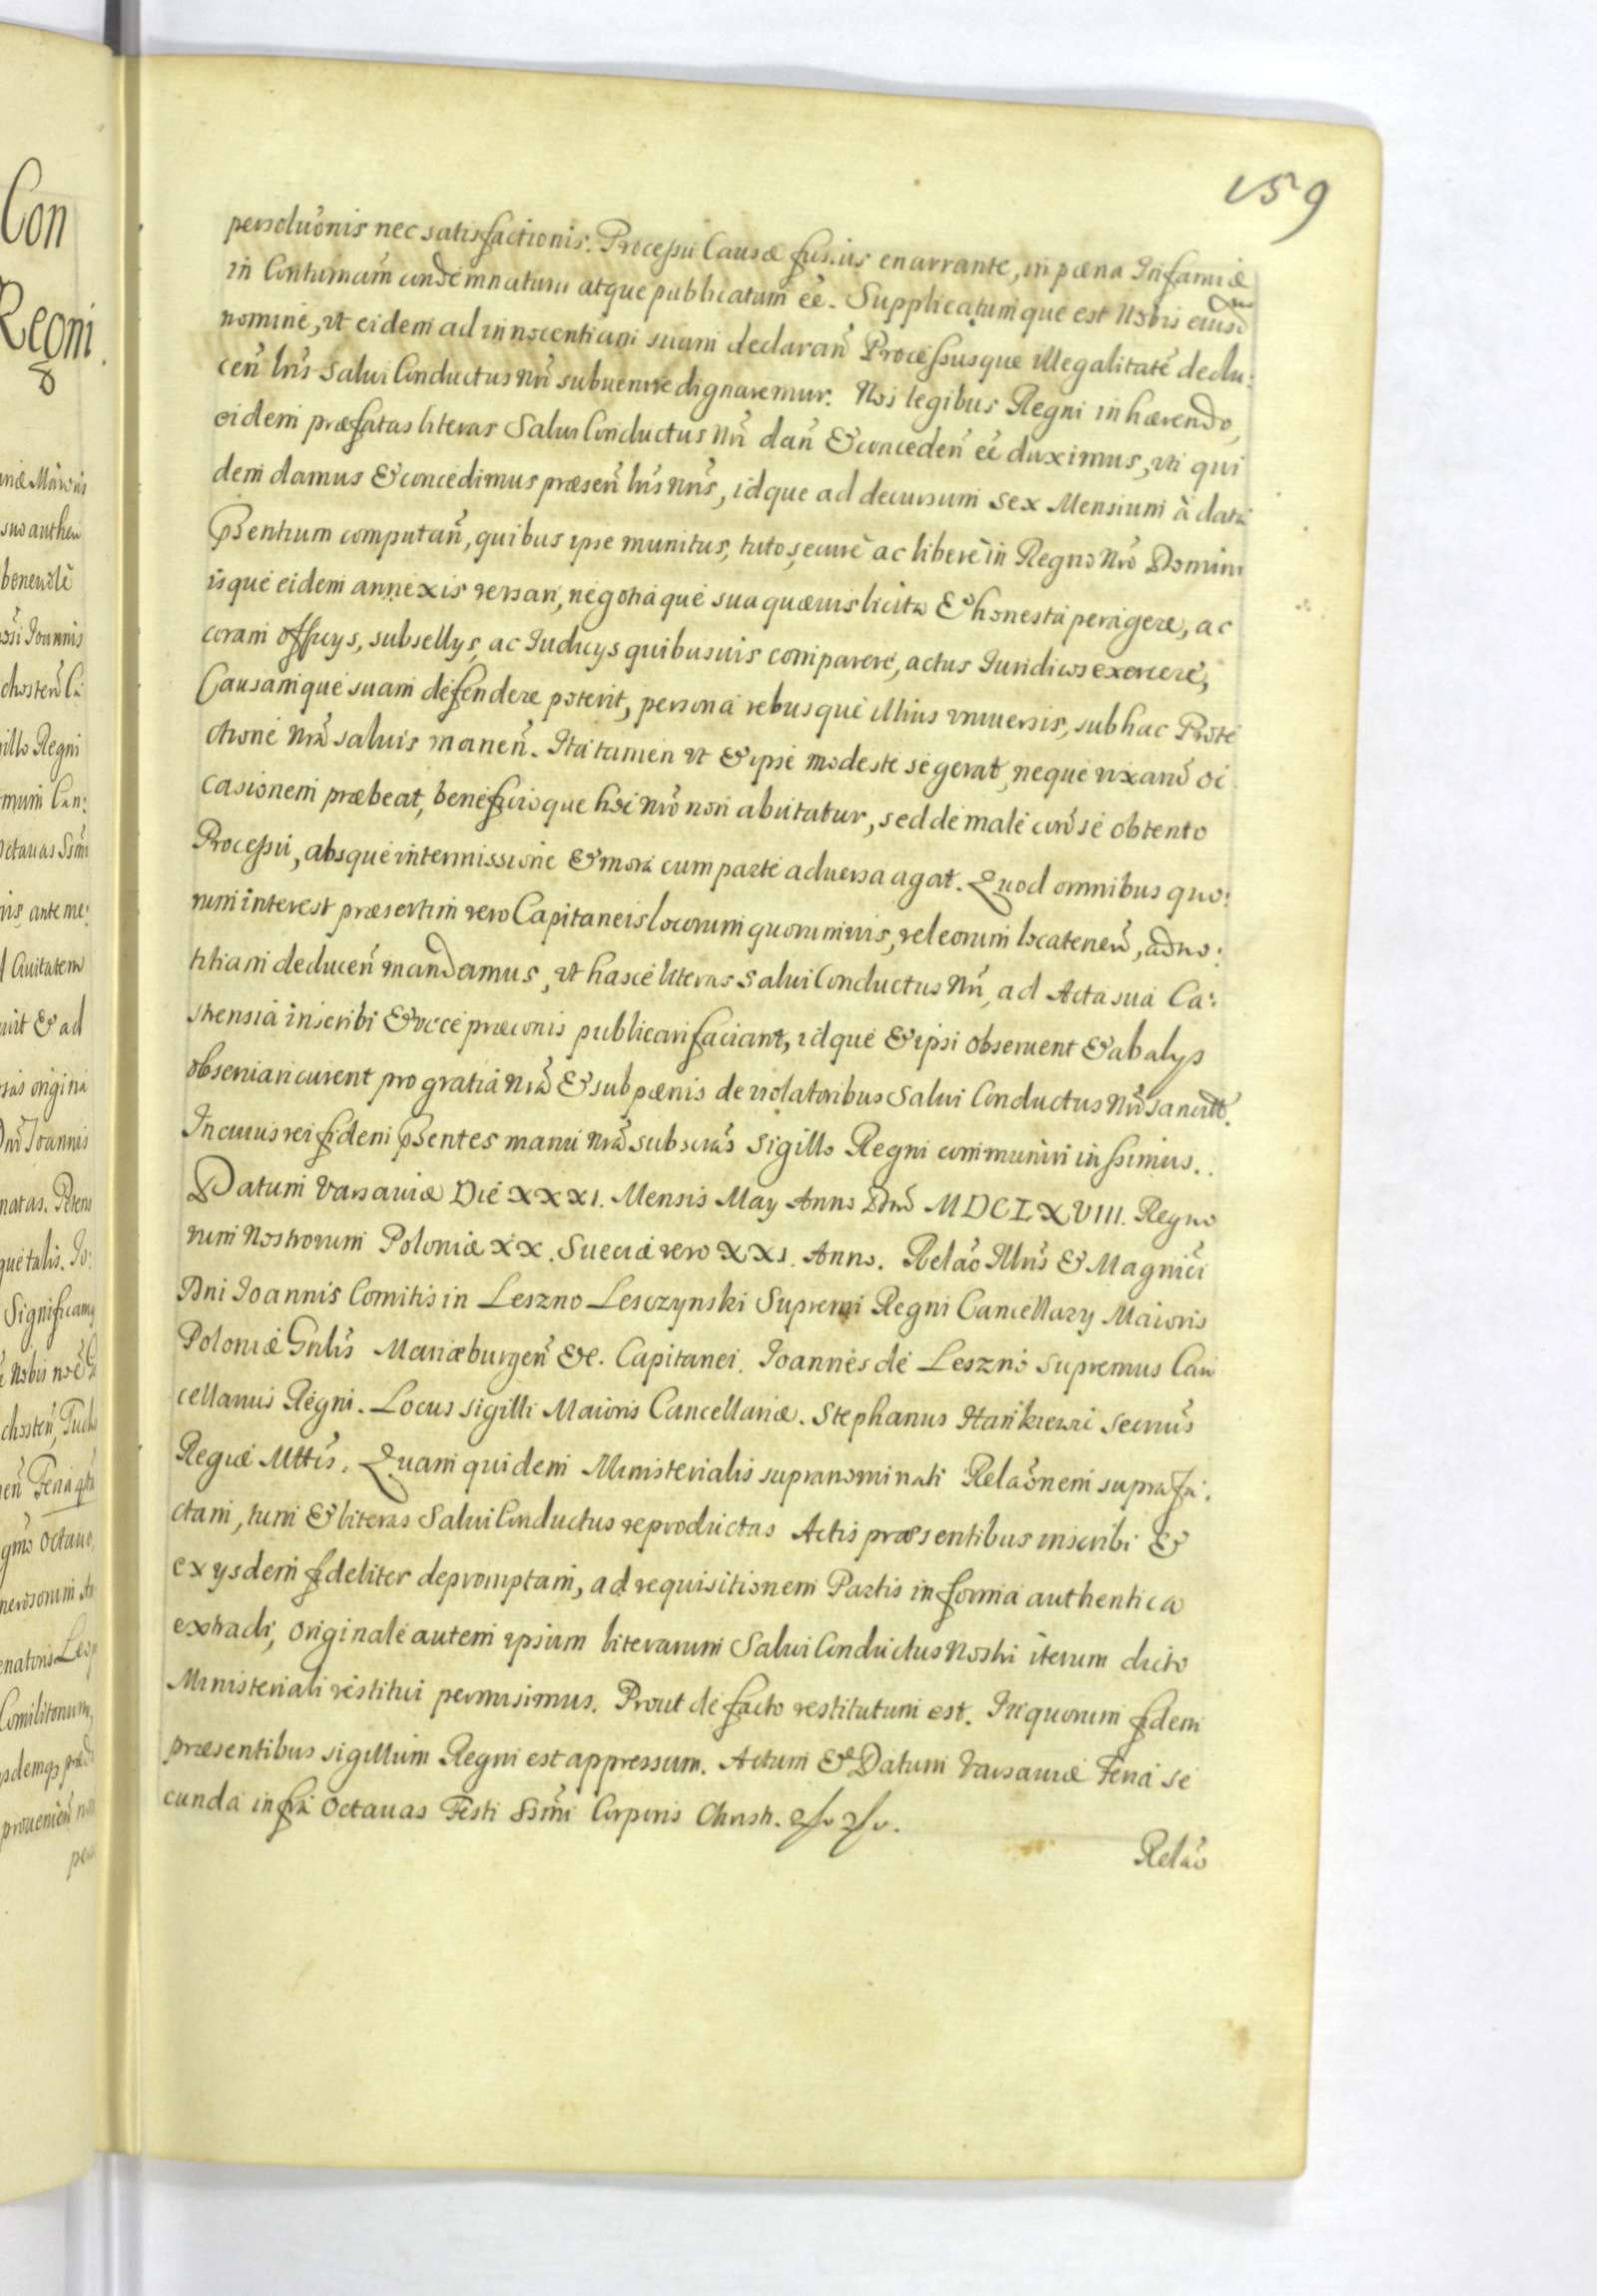 159
persoluõnis nec satisfactionis. Processu Causæ fusius enarrante, in pœna Infamiæ
in Contumam condemnatum atque publicatam eẽ. Supplicatumque est Nobis eiusd
nomine, vt eidem ad innocentiam suam declaran̄ Processusque illegalitate dedu:
cen̄ lr̄is Salui Conductus Nr̄i subuenire dignaremur. Nos legibus Regni inhærendo,
eidem præfatas literas Salui Conductus Nr̄i dan̄ & conceden̄ eẽ duximus, vti qui
dem damus & concedimus præsen̄ lr̄is nr̄is, idque ad decursum sex Mensium à data
P̃sentium computan̄, quibus ipse munitus, tuto, secure ac liberè in Regno Nr̄o Domini
isque eidem annexis versari, negotiaque sua quæuis licita & honesta peragere, ac
coram officys, subsellys, ac Iudicys quibusuis comparere, actus Iuridicos exercere,
Causamque suam defendere poterit, persona rebusque illius vniuersis, sub hac Prote
ctione Nr̄a saluis manen̄. Ita tamen vt & ipse modeste se gerat, neque rixan̄ oc
casionem præbeat, beneficioque hoc nr̄o non abutatur, sed de malè con̄ se obtento
Processu, absque intermissione & mora cum parte aduersa agat. Quod omnibus quo:
rum interest præsertim vero Capitaneis locorum quorumuis, vel eorum locatenen̄, ad no:
titiam deducen̄ mandamus, vt hasce literas Salui Conductus Nr̄i, ad Acta sua Ca:
strensia inscribi & voce præconis publicari faciant, idque & ipsi obseruent & ab alys
obseruari curent pro gratia nr̄a & sub pœnis de violatoribus Salui Conductus Nr̄i sancitt.
In cuius rei fidem p̃sentes manu nr̄a subscr̄as Sigillo Regni communiri iussimus..
Datum Varsauiæ Die XXXI. Mensis May Anno Dn̄i MDCLXVIII. Regno
rum Nostrorum Poloniæ XX. Sueciæ vero XXI. Anno. Relao Illr̄is & Magnici
Dni Ioannis Comitis in Leszno Lesczynski Supremi Regni Cancellary Maioris
Poloniæ Gnlis Mariæburgen̄ &c. Capitanei. Ioannes de Leszno Supremus Can
cellarius Regni. Locus sigilli Maioris Cancellariæ. Stephanus Hankiewic Secrius
Regiæ Mttis. Quam quidem Ministerialis supranominati Relaõnem suprafa:
ctam, tum & literas Salui Conductus reproductas Actis præsentibus inscribi &
ex ysdem fideliter depromptam, ad requisitionem Partis in forma authentica
extradi, originale autem ipsum literarum Salui Conductus Nostri iterum dicto
Ministeriali restitui permisimus. Prout de facto restitutum est. In quorum fidem
præsentibus sigillum Regni est appressum. Actum & Datum Varsauiæ Feria se
cunda infra Octauas Festi Ssm̄i Corporis Christi.
Relao